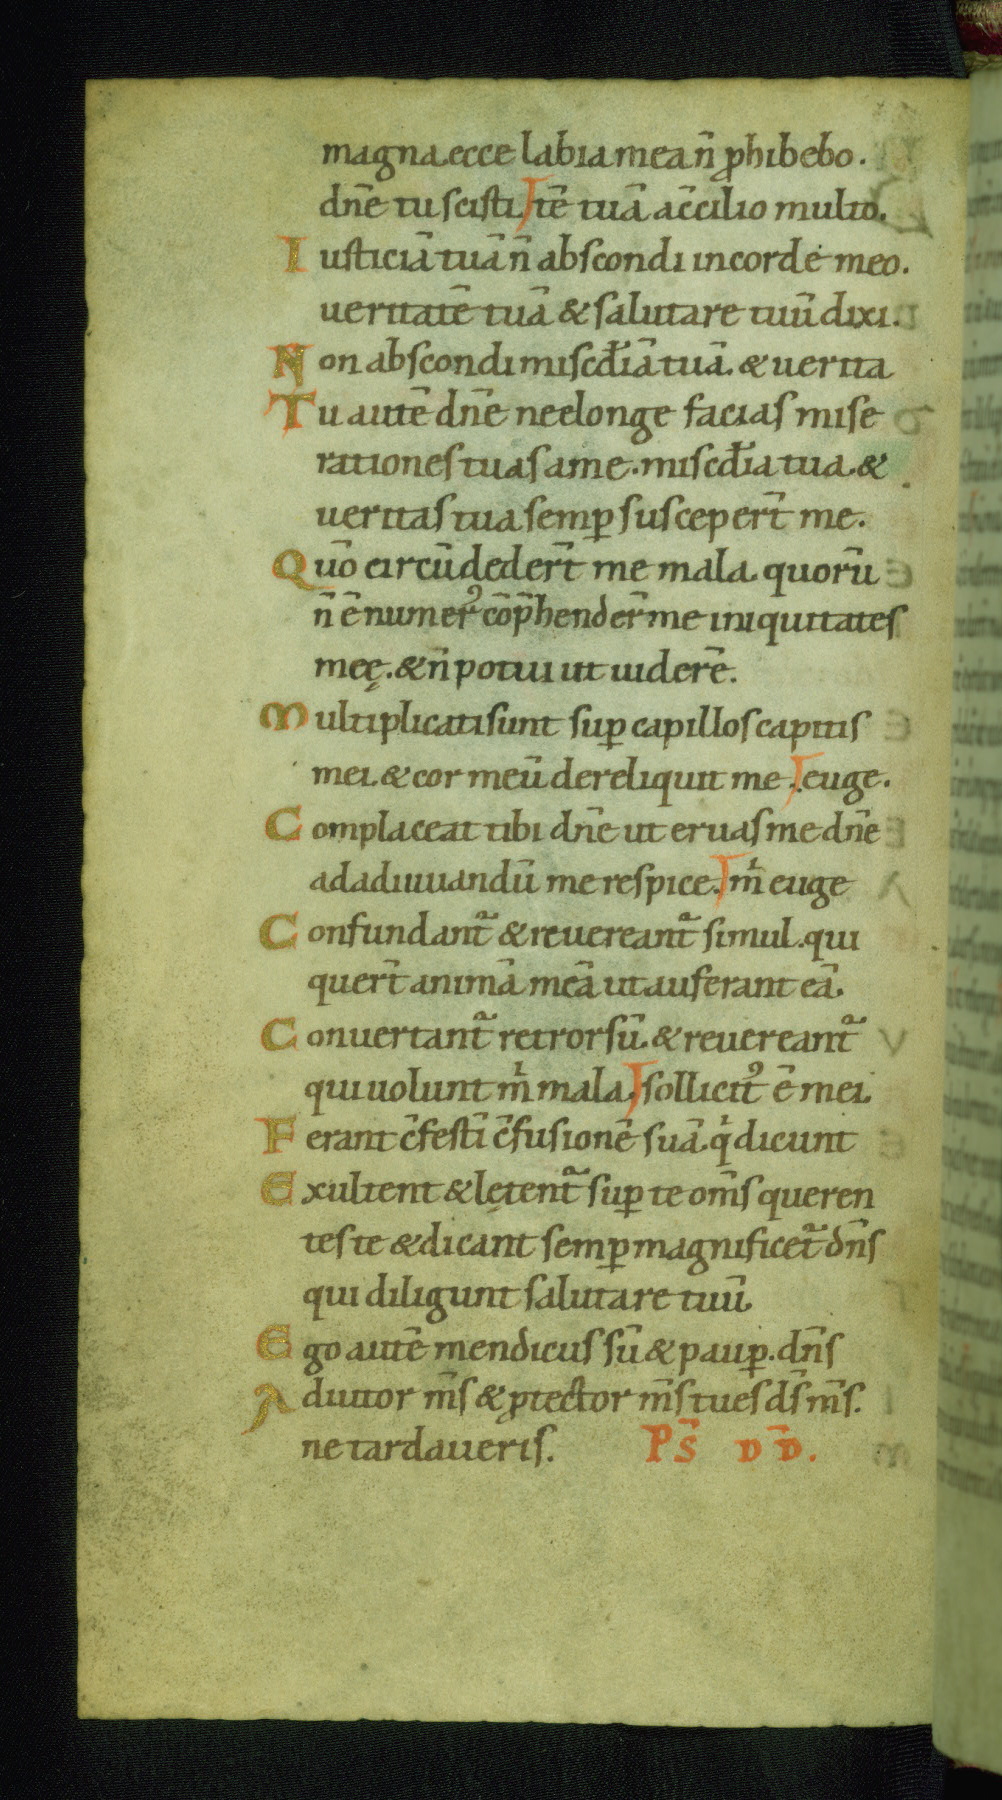 magna. ecce labia mea n̄ ꝓhibebo.
dn̄e tu scisti. tē tuā a c̄cilio multo.
Iusticiā tuā n̄ abscondi in corde meo.
ueritatē tuā & salutare tuū dixi.
Non abscondi misc̄diā tuā. & uerita
Tu autē dn̄e ne elonge facias mise
rationes tuas a me. misc̄dia tua. &
ueritas tua semꝑ susceper̄t me.
Qūo circūdeder̄t me mala. quorū
n̄ ē numerꝰ cōp̄hender̄ me iniquitates
meę. & n̄ potui ut uiderē.
Multiplicati sunt suꝑ capillos capitis
mei. & cor meū dereliquit me. euge.
Complaceat tibi dn̄e ut eruas me dn̄e
ad adiuuandū me respice. m̄ euge
Confundant᷑ & reuereant᷑ simul. qui
quer̄t animā meā ut auferant eā.
Conuertant᷑ retrorsū. & reuereant᷑
qui uolunt m̄ mala. sollicitꝰ ē mei.
Ferant c̄festī c̄fusionē suā. qͥ dicunt
Exultent & lętent᷑ suꝑ te om̄s queren
tes te & dicant semꝑ magnificet᷑ dn̄s
qui diligunt salutare tuū.
Ego autē mendicus sū & pauꝑ. dn̄s
Adiutor m̄s & ꝓtector m̄s tu es ds̄ m̄s.
ne tardaueris. Ps̄ DD̄.